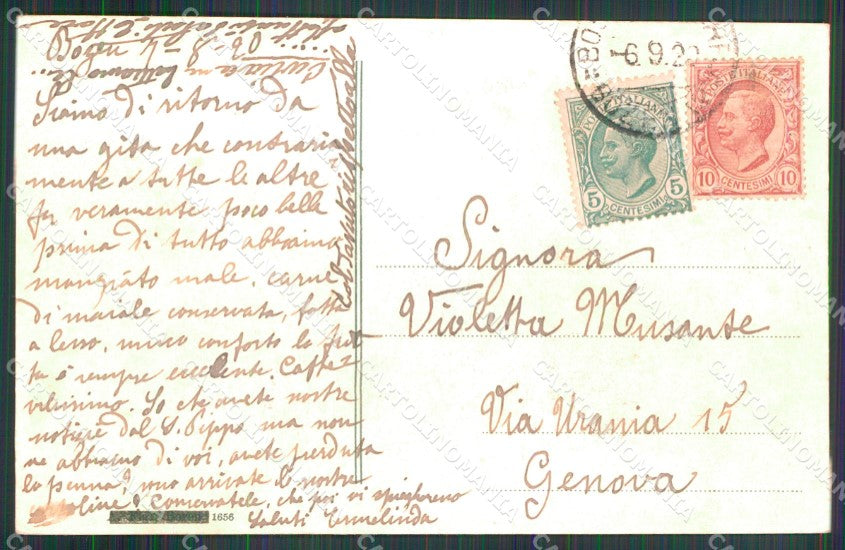 Bozen 4-9-20
Siamo di ritorno da
una gita che contraria
mente a tutte le altre
fu veramente poco bella
prima di tutto abbiamo
mangiato male, carne
di maiale conservata, fatta
a lesso, unico conforto la frut
ta è sempre eccellente. Caffè
vilissimo. So che avete nostre
notizie dal S. Peppo ma non
ne abbiamo di voi, avete perduta
la penna? sono arrivate le nostre
cartoline? Conservatele, che poi vi spiegheremo
Saluti Ermelinda
1656
BO
6.9.2
POSTE ITALIANE
5 5
CENTESIMI
POSTE ITALIANE
10 10
CENTESIMI
Signora
Violetta Musante
Via Urania 15
Genova
CARTOLINOMANIA